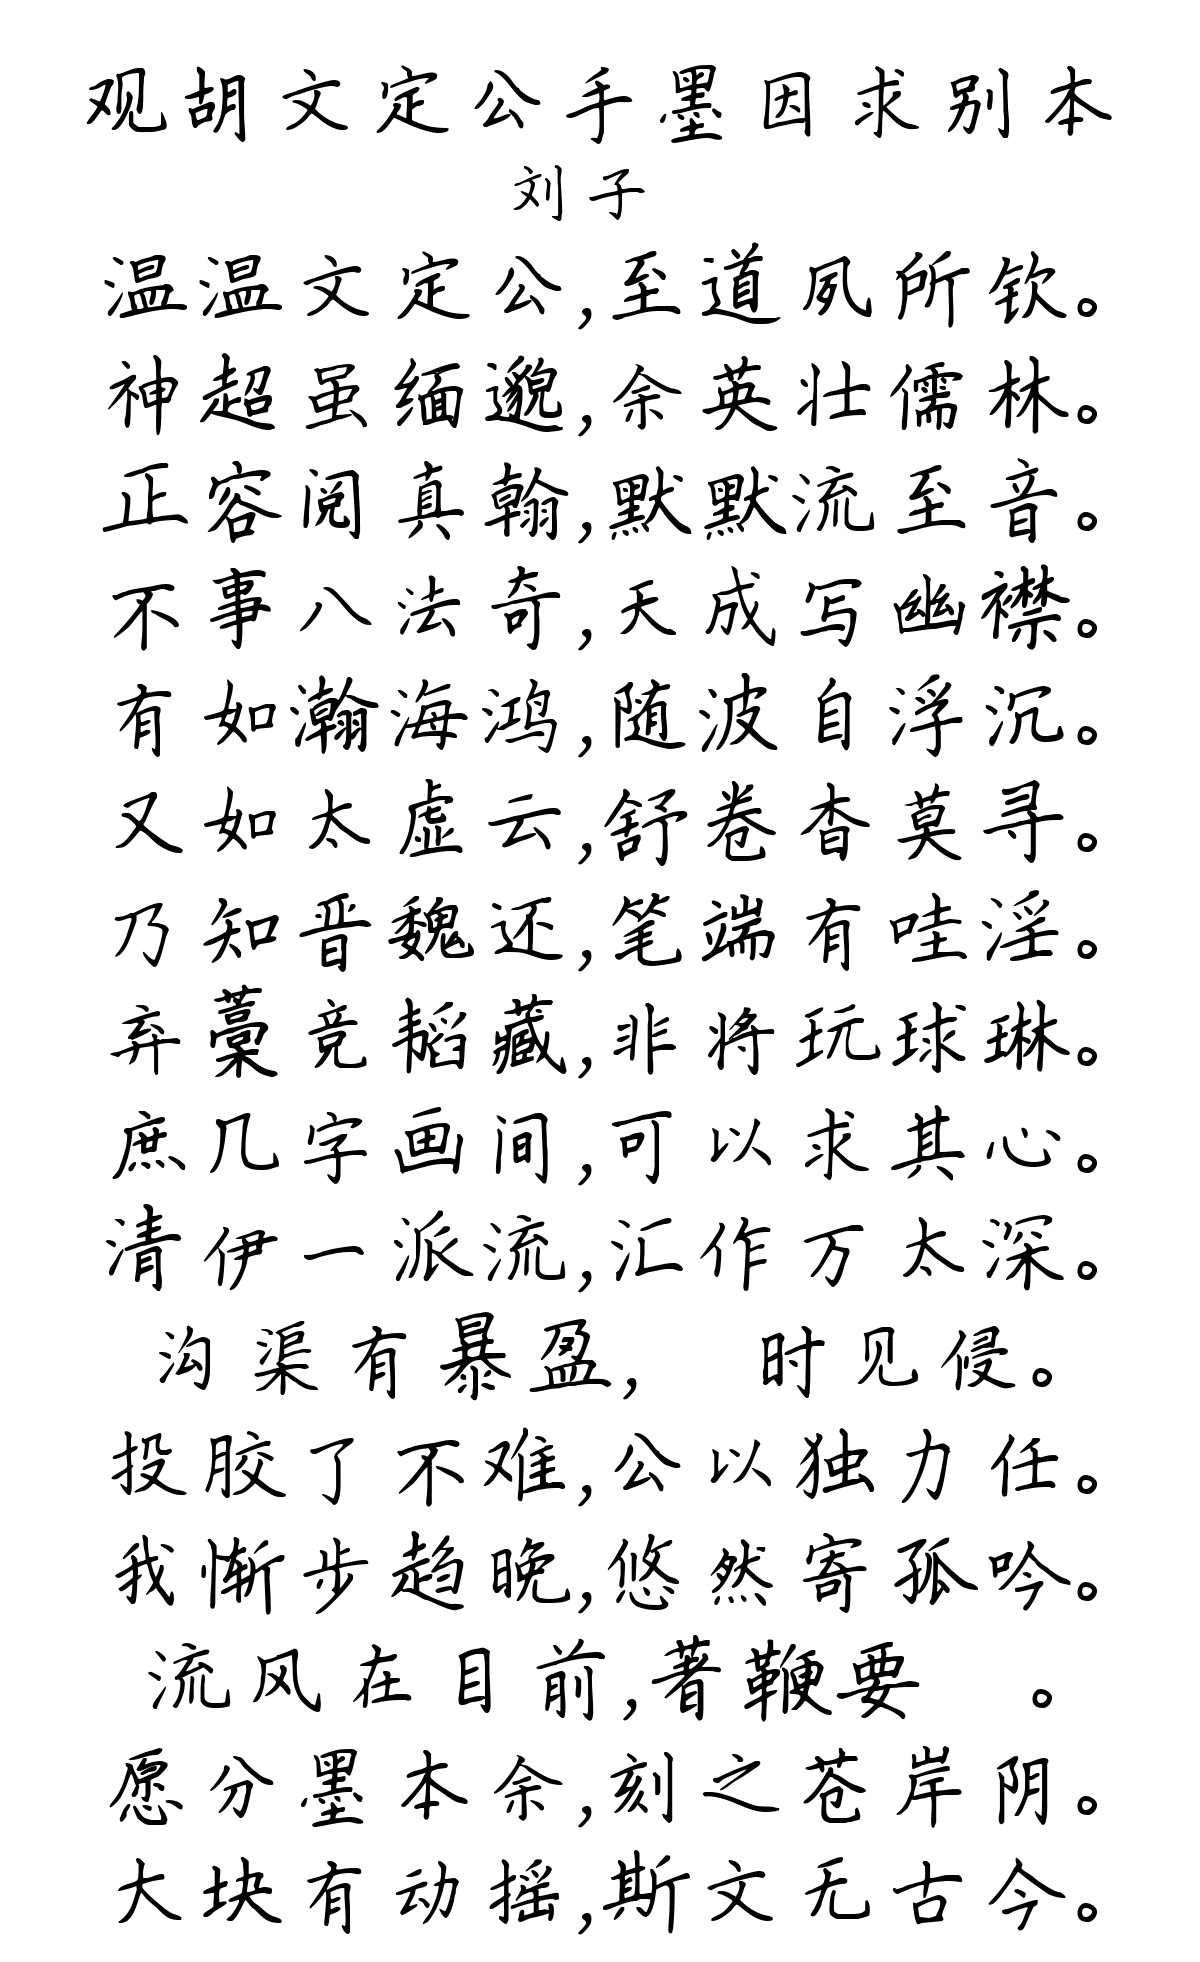 观胡文定公手墨因求别本
刘子
温温文定公,至道夙所钦。
神超虽缅邈,余英壮儒林。
正容阅真翰,默默流至音。
不事八法奇,天成写幽襟。
有如瀚海鸿,随波自浮沉。
又如太虚云,舒卷杳莫寻。
乃知晋魏还,笔端有哇淫。
弃藁竞韬藏,非将玩球琳。
庶几字画间,可以求其心。
清伊一派流,汇作万太深。
沟渠有暴盈, 时见侵。
投胶了不难,公以独力任。
我惭步趋晚,悠然寄孤吟。
流风在目前,著鞭要 。
愿分墨本余,刻之苍岸阴。
大块有动摇,斯文无古今。